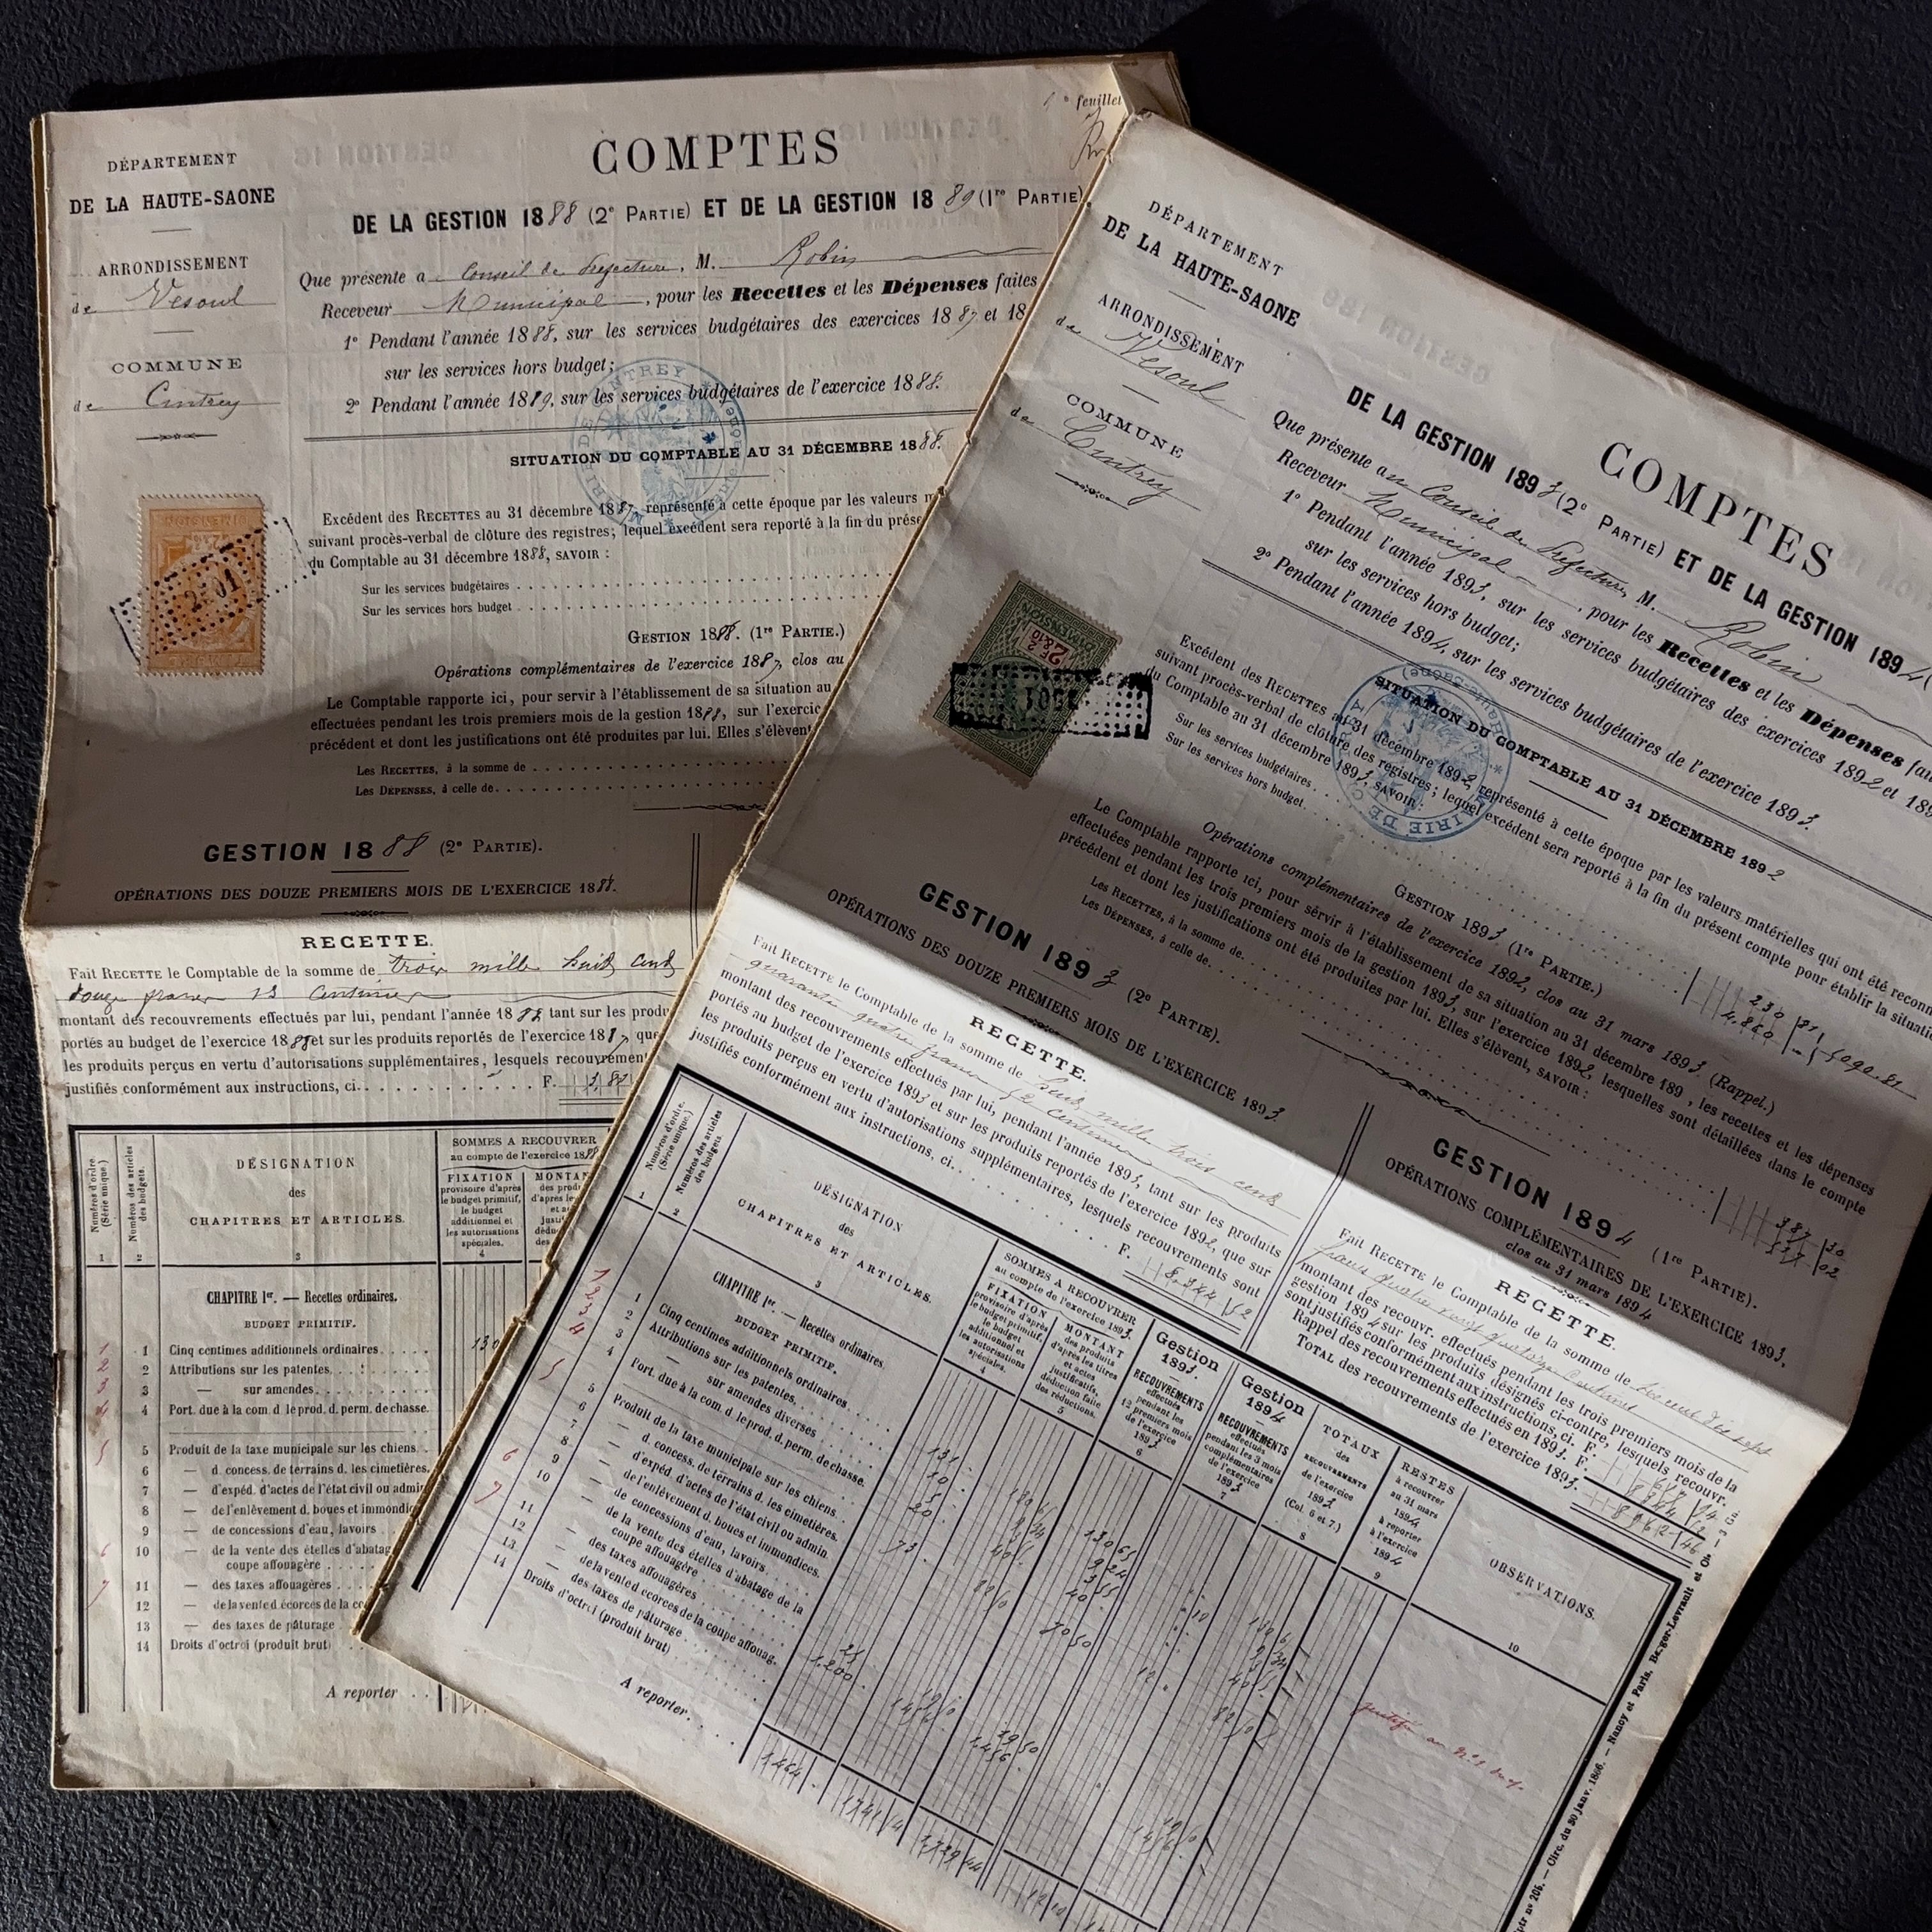 1e feuillet
DÉPARTEMENT
DE LA HAUTE-SAONE
ARRONDISSEMENT
de Vesoul
COMMUNE
de Cintrey
COMPTES
DE LA GESTION 1888 (2e PARTIE) ET DE LA GESTION 1889 (1re PARTIE)
Que présente a Conseil de Préfecture, M. Robin
Receveur Municipal, pour les Recettes et les Dépenses faites
1° Pendant l'année 1888, sur les services budgétaires des exercices 1887 et 18
sur les services hors budget;
2° Pendant l'année 1889, sur les services budgétaires de l'exercice 1888.
SITUATION DU COMPTABLE AU 31 DÉCEMBRE 1888.
Excédent des RECETTES au 31 décembre 1887, représenté à cette époque par les valeurs m
suivant procès-verbal de clôture des registres; lequel excédent sera reporté à la fin du prése
du Comptable au 31 décembre 1888, SAVOIR :
Sur les services budgétaires
Sur les services hors budget
GESTION 1888. (1re PARTIE.)
Opérations complémentaires de l'exercice 1887, clos au
Le Comptable rapporte ici, pour servir à l'établissement de sa situation au
effectuées pendant les trois premiers mois de la gestion 1888, sur l'exercic
précédent et dont les justifications ont été produites par lui. Elles s'élèvent
Les RECETTES, à la somme de
Les DÉPENSES, à celle de
GESTION 1888 (2e PARTIE).
OPÉRATIONS DES DOUZE PREMIERS MOIS DE L'EXERCICE 1888.
RECETTE.
Fait RECETTE le Comptable de la somme de trois mille huit cent
douze francs 13 centimes
montant des recouvrements effectués par lui, pendant l'année 1888 tant sur les produ
portés au budget de l'exercice 1888 et sur les produits reportés de l'exercice 1887, que
les produits perçus en vertu d'autorisations supplémentaires, lesquels recouvremen
justifiés conformément aux instructions, ci F.
Numéros d'ordre. (Série unique.)
Numéros des articles des budgets.
DÉSIGNATION
des
CHAPITRES ET ARTICLES.
SOMMES A RECOUVRER
au compte de l'exercice 1888
FIXATION
provisoire d'après
le budget primitif,
le budget
additionnel et
les autorisations
spéciales.
1 2 3 4
CHAPITRE Ier. — Recettes ordinaires.
BUDGET PRIMITIF.
1 1 Cinq centimes additionnels ordinaires 130
2 2 Attributions sur les patentes
3 3 — sur amendes
4 4 Port. due à la com. d. le prod. d. perm. de chasse.
5 5 Produit de la taxe municipale sur les chiens
6 — d. concess. de terrains d. les cimetières.
7 — d'expéd. d'actes de l'état civil ou admin
8 — de l'enlèvement d. boues et immondic
9 — de concessions d'eau, lavoirs
6 10 — de la vente des ételles d'abatag
coupe affouagère
7 11 — des taxes affouagères
12 — de la vente d. écorces de la co
13 — des taxes de pâturage
14 Droits d'octroi (produit brut)
A reporter
DÉPARTEMENT
DE LA HAUTE-SAONE
ARRONDISSEMENT
de Vesoul
COMMUNE
de Cintrey
COMPTES
DE LA GESTION 1893 (2e PARTIE) ET DE LA GESTION 1894 (
Que présente au Conseil de Préfecture, M. Robin
Receveur Municipal, pour les Recettes et les Dépenses fai
1° Pendant l'année 1893, sur les services budgétaires des exercices 1892 et 189
sur les services hors budget;
2° Pendant l'année 1894, sur les services budgétaires de l'exercice 1893.
SITUATION DU COMPTABLE AU 31 DÉCEMBRE 1892
Excédent des RECETTES au 31 décembre 1892, représenté à cette époque par les valeurs matérielles qui ont été reconn
suivant procès-verbal de clôture des registres; lequel excédent sera reporté à la fin du présent compte pour établir la situati
du Comptable au 31 décembre 1893, SAVOIR :
Sur les services budgétaires 230 81
Sur les services hors budget 4.860 - 5090.81
GESTION 1893 (1re PARTIE.)
Opérations complémentaires de l'exercice 1892, clos au 31 mars 1893 (Rappel.)
Le Comptable rapporte ici, pour servir à l'établissement de sa situation au 31 décembre 189 , les recettes et les dépenses
effectuées pendant les trois premiers mois de la gestion 1893, sur l'exercice 1892, lesquelles sont détaillées dans le compte
précédent et dont les justifications ont été produites par lui. Elles s'élèvent, SAVOIR :
Les RECETTES, à la somme de
Les DÉPENSES, à celle de
GESTION 1893 (2e PARTIE).
OPÉRATIONS DES DOUZE PREMIERS MOIS DE L'EXERCICE 1893.
RECETTE.
Fait RECETTE le Comptable de la somme de huit mille trois cent
quarante quatre francs 52 centimes
montant des recouvrements effectués par lui, pendant l'année 1893, tant sur les produits
portés au budget de l'exercice 1893 et sur les produits reportés de l'exercice 1892, que sur
les produits perçus en vertu d'autorisations supplémentaires, lesquels recouvrements sont
justifiés conformément aux instructions, ci F. 8.344 52
GESTION 1894 (1re PARTIE).
OPÉRATIONS COMPLÉMENTAIRES DE L'EXERCICE 1893,
clos au 31 mars 1894
RECETTE.
Fait RECETTE le Comptable de la somme de
montant des recouvr. effectués pendant les trois premiers mois de la
gestion 1894 sur les produits désignés ci-contre, lesquels recouvr.
sont justifiés conformément aux instructions, ci. F.
Rappel des recouvrements effectués en 1893. F.
TOTAL des recouvrements de l'exercice 1893.
Numéros d'ordre. (Série unique.)
Numéros des articles des budgets
DÉSIGNATION
des
CHAPITRES ET ARTICLES.
SOMMES A RECOUVRER
au compte de l'exercice 1893.
FIXATION
provisoire d'après
le budget primitif,
le budget
additionnel et
les autorisations
spéciales.
MONTANT
des produits
d'après les titres
et actes
justificatifs,
déduction faite
des réductions.
Gestion 1893
RECOUVREMENTS
effectués
pendant les
12 premiers mois
de l'exercice
1893
Gestion 1894
RECOUVREMENTS
effectués
pendant les 3 mois
complémentaires
de l'exercice
1893
TOTAUX
des
RECOUVREMENTS
de l'exercice
1893
(Col. 6 et 7.)
RESTES
à recouvrer
au 31 mars
1894
à reporter
à l'exercice
1894
OBSERVATIONS.
1 2 3 4 5 6 7 8 9 10
CHAPITRE Ier. — Recettes ordinaires.
BUDGET PRIMITIF.
1 1 Cinq centimes additionnels ordinaires 131
2 2 Attributions sur les patentes 10
3 3 — sur amendes diverses 5
4 4 Port. due à la com. d. le prod. d. perm. de chasse. 20
5 5 Produit de la taxe municipale sur les chiens 73
6 — d. concess. de terrains d. les cimetières.
7 — d'expéd. d'actes de l'état civil ou admin.
8 — de l'enlèvement d. boues et immondices.
9 — de concessions d'eau, lavoirs
6 10 — de la vente des ételles d'abatage de la
coupe affouagère
7 11 — des taxes affouagères
12 — de la vente d. écorces de la coupe affouag.
13 — des taxes de pâturage
14 Droits d'octroi (produit brut)
A reporter 1.464
2F &10
DIMENSION
Circ. du 30 janv. 1866. — Nancy et Paris, Berger-Levrault et Cie